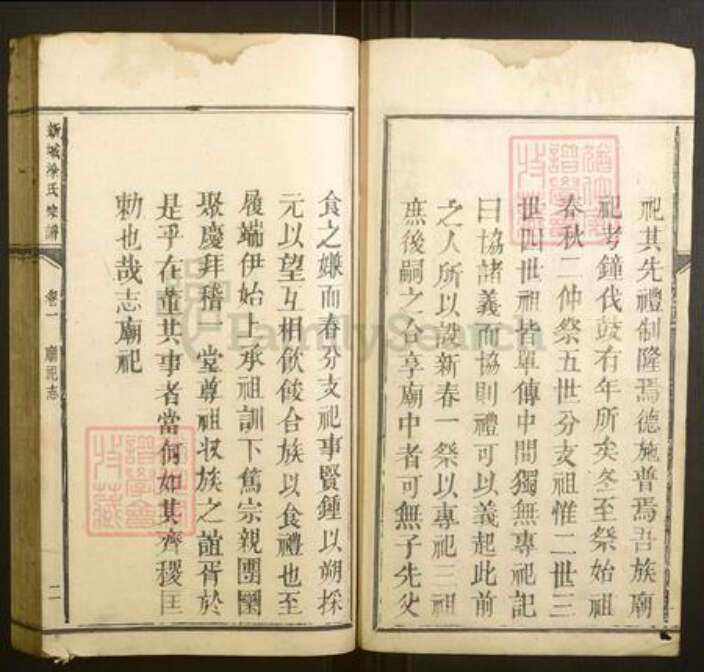 祀其先禮制隆焉德施普焉吾族廟
祀考鐘伐鼓有年所矣冬至祭始祖
春秋二仲祭五世分支祖惟二世三
世四世祖皆單傳中間獨無專祀記
曰協諸義而協則禮可以義起此前
之人所以設新春一祭以專祀三祖
庶後嗣之合享廟中者可無子先父
食之嫌而春分支祀事賢鍾以朔採
元以望互相飲餕合族以食禮也至
履端伊始上承祖訓下篤宗親團圞
聚慶拜稽一堂尊祖收族之誼胥於
是乎在董其事者當何如其齊稷匡
勑也哉志廟祀
新城 氏家譜
卷一
廟祀志
二
FamilySearch
譜學會
收藏